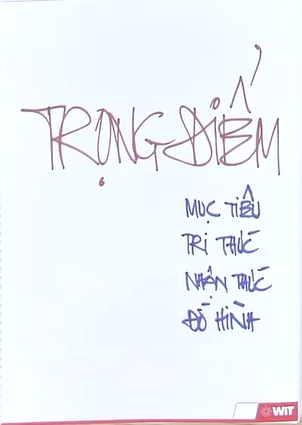 TRỌNG ĐIỂM
MỤC TIÊU
TRI THỨC
NHẬN THỨC
ĐỒ HÌNH
WIT